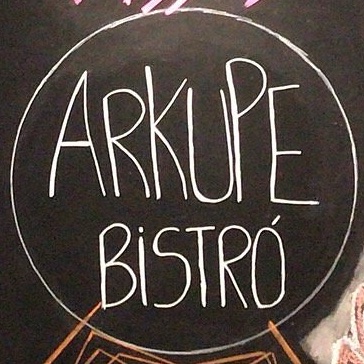 ARKUPE
BiSTRÓ